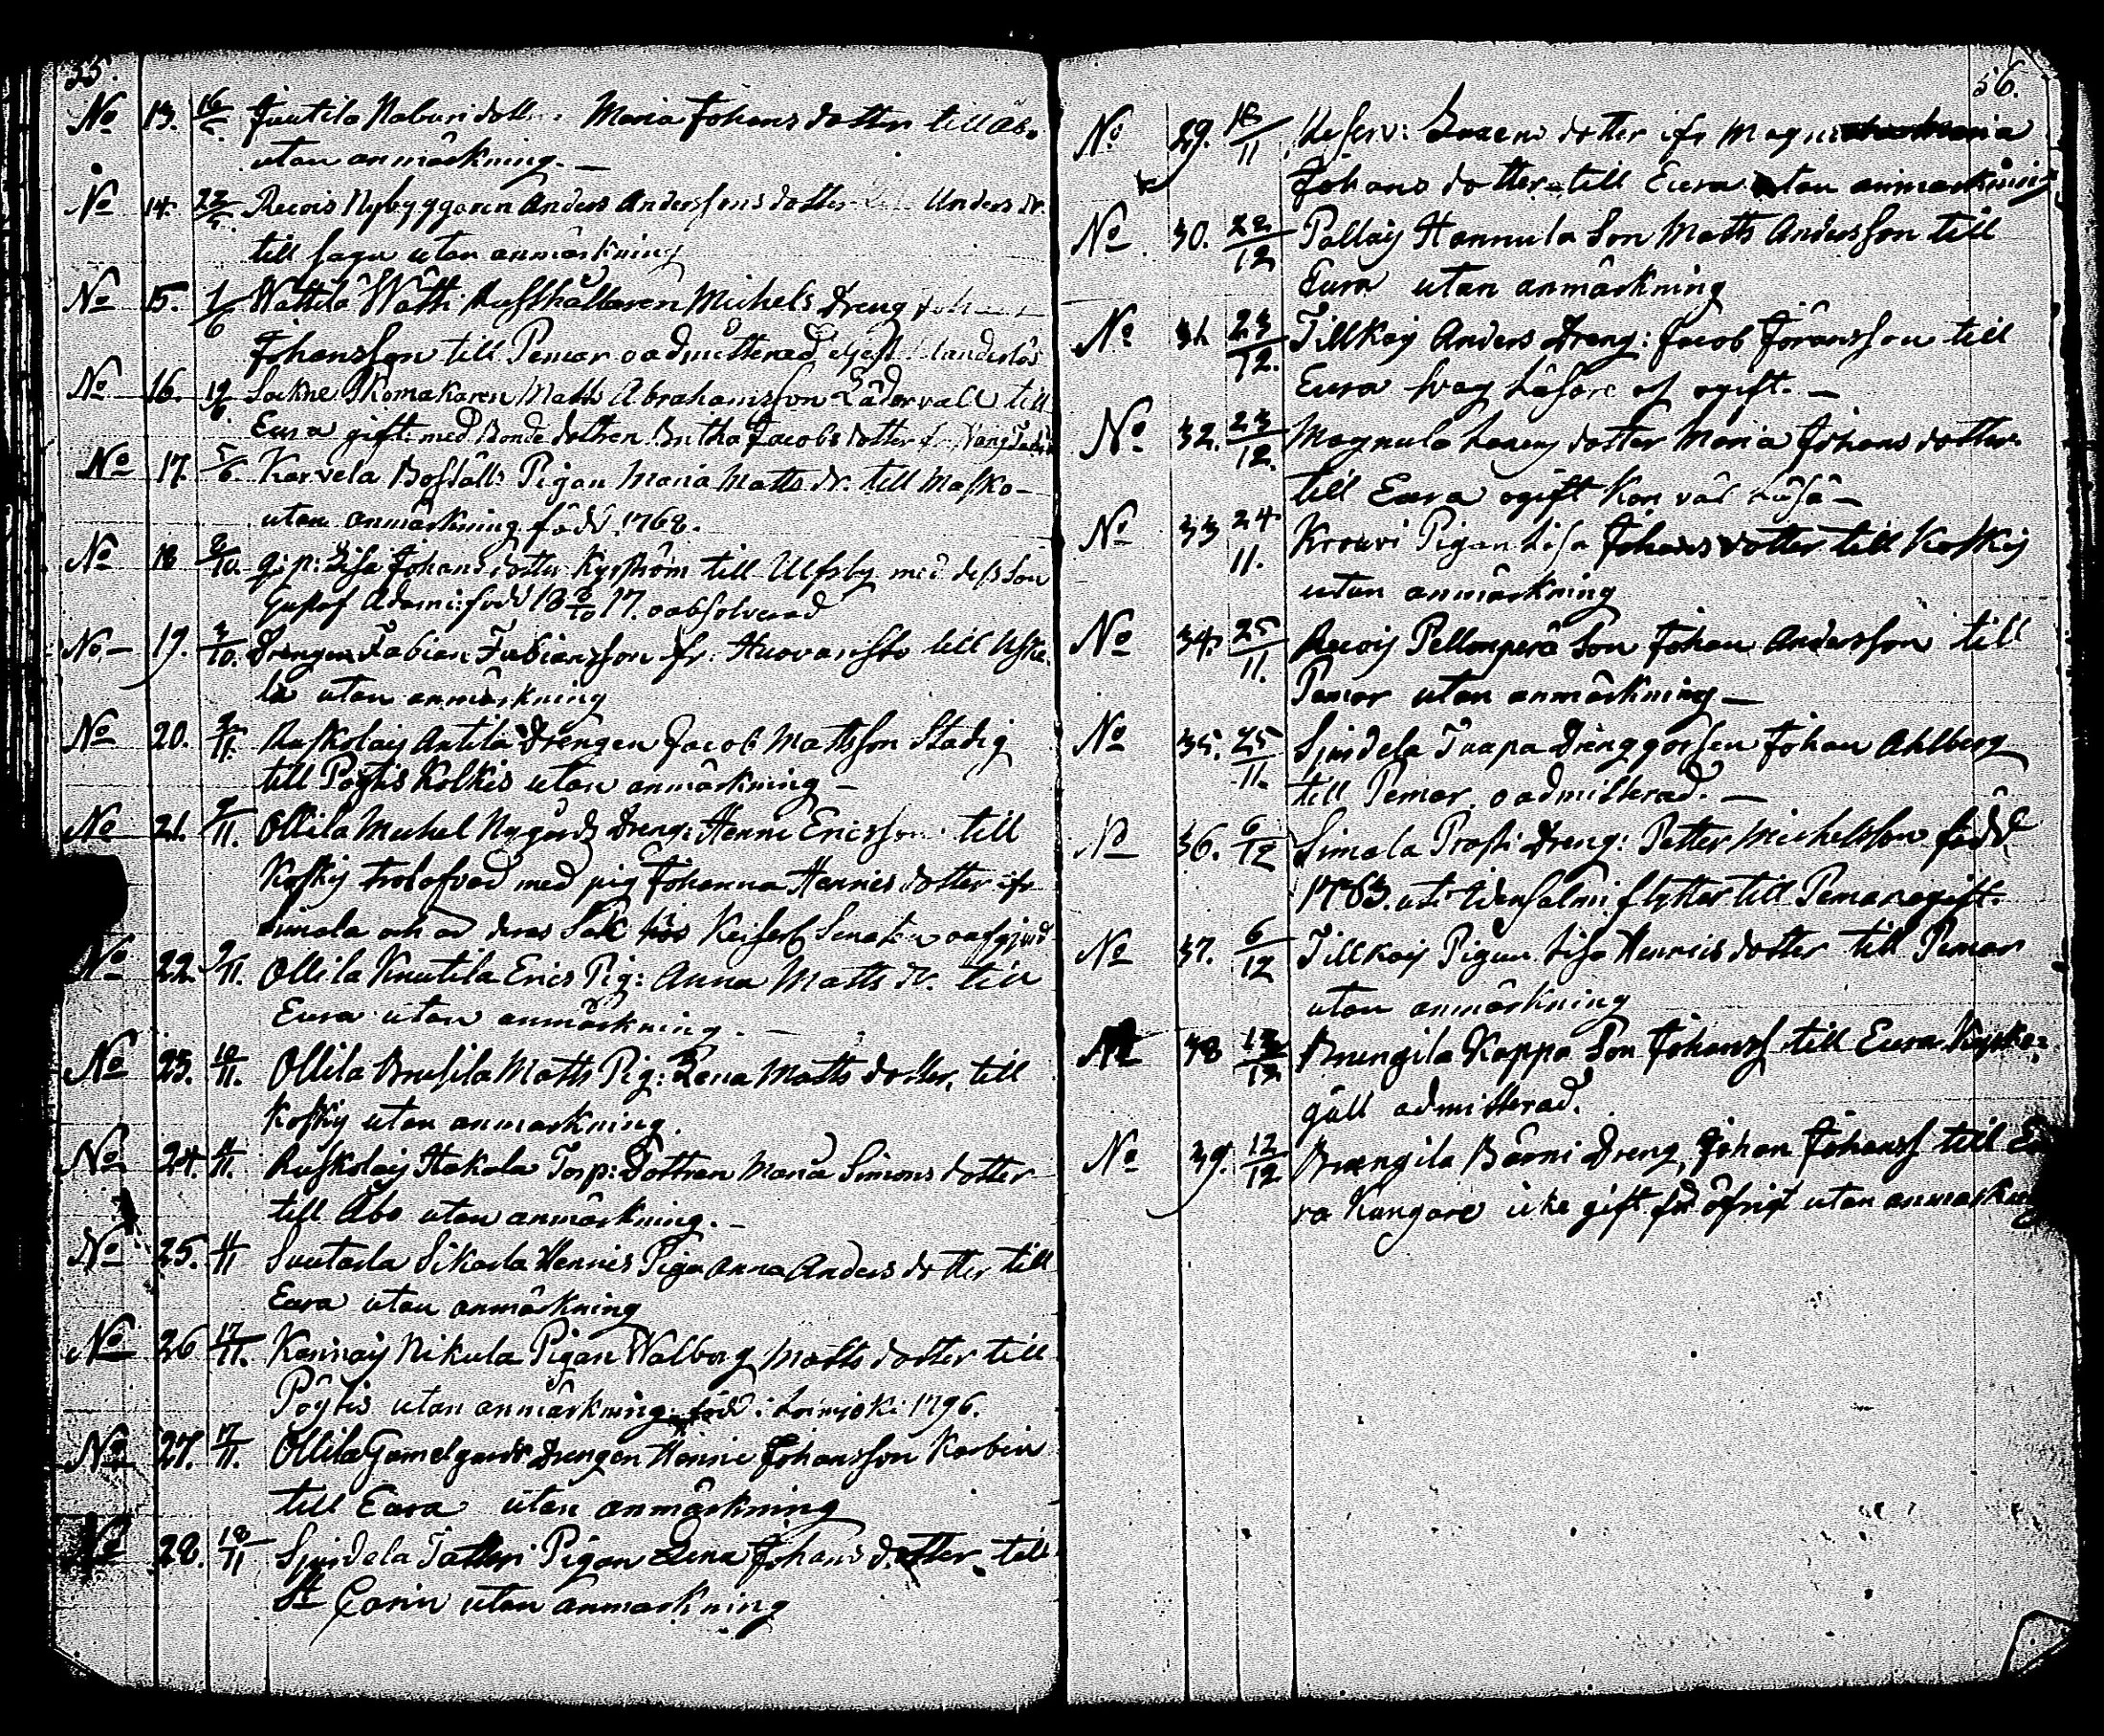 55.
No 13. 16/5. Juutila Naburi dotter Maria Johans dotter till Åbo
utan anmärkning. —
No 14. 23/5. Recois Nybyggaren Anders Anderssons dotter Anders dr.
till Sagu utan anmärkning
No 15. 1/6 Wättilä Wätti Rusthållaren Michels Dreng
Johansson till Pemar oadmitterad
No 16. 19/6. Sockne Skomakaren Matts Abrahamsson Lädervall till
Eura gift med Bonde dottren Britha Jacobs dotter
No 17. 5/6. Karvela Boställs Pigan Maria Matts dr. till Masko
utan anmärkning född 1768.
No 18 2/10. Lisa Johans dotter Kyrström till Ulfsby med dess Son
Gustaf Adam: född 18 2/10 17. oabsolverad
No — 19. 3/10. Drengen Fabian Fabiansson fr. till Uske-
la utan anmärkning
No 20. 3/11. Ruskolaij Antila Drengen Jacob Mattsson Stadig
till Pöytis Kolkis utan anmärkning —
No 21. 9/11. Ollila Michel Nygårds Dreng: Henric Ericsson till
Koskij trolofvad med pig Johanna Henrics dotter ifr
Simala och är deras Sak hos Keiserl Senaten oafgjord
No 22. 9/11. Ollila Knutila Erics Pig: Anna Matts dr. till
Eura utan anmärkning. —
No 23. 10/11. Ollila Brusila Matts Pig: Lena Matts dotter, till
Koskij utan anmärkning.
No 24. 11/11. Ruskolaij Hakola Torp: Dottren Maria Simons dotter
till Åbo utan anmärkning. —
No 25. 11/11 Suutarla Sikarla Henrics Piga Anna Anders dotter till
Eura utan anmärkning
No 26 17/11. Kannaij Nikula Pigan Walborg Matts dotter till
Pöytis utan anmärkning född i Loimjoki 1796.
No 27. 17/11. Ollila Gamelgårds Drengen Henric Johansson Korbin
till Eura utan anmärkning
No 28. 18/11 Sjundela Tatteri Pigan Lena Johans dotter till
St Carin utan anmärkning
56.
No 29. 18/11 Reserv: dotter ifr Magnula Maria
Johans dotter till Eura utan anmärkning
No 30. 22/12 Pallaij Hannula Son Matts Andersson till
Eura utan anmärkning
No 31. 23/12. Tillkaij Anders Dreng: Jacob Jöransson till
Eura svag Läsare of ogift. —
No 32. 23/12. Magnula dotter Maria Johans dotter
till Eura ogift kan väl Läsa —
No 33 24/11. Krouvi Pigan Lisa Johans dotter till Koskij
utan anmärkning
No 34. 25/11. Recois Pellonperä Son Johan Andersson till
Pemar utan anmärkning —
No 35. 25/11. Sjundela Tuapa Drenggossen Johan Ahlberg
till Pemar. oadmitterad. —
No 36. 6/12 Simala Prosti Dreng: Petter Michelsson född
1763. uti Idensalmi flytter till Pemar ogift.
No 37. 6/12 Tillkaij Pigan Lisa Henrics dotter till Pemar
utan anmärkning
No 38 12/12 Brungila Kappa Son Johans till Eura Kyrke-
gäll admitterad.
No 39. 12/12 Brungila Bärni Dreng, Johan Johanss till Eu
ra Kungare icke gift för öfrigt utan anmärkning